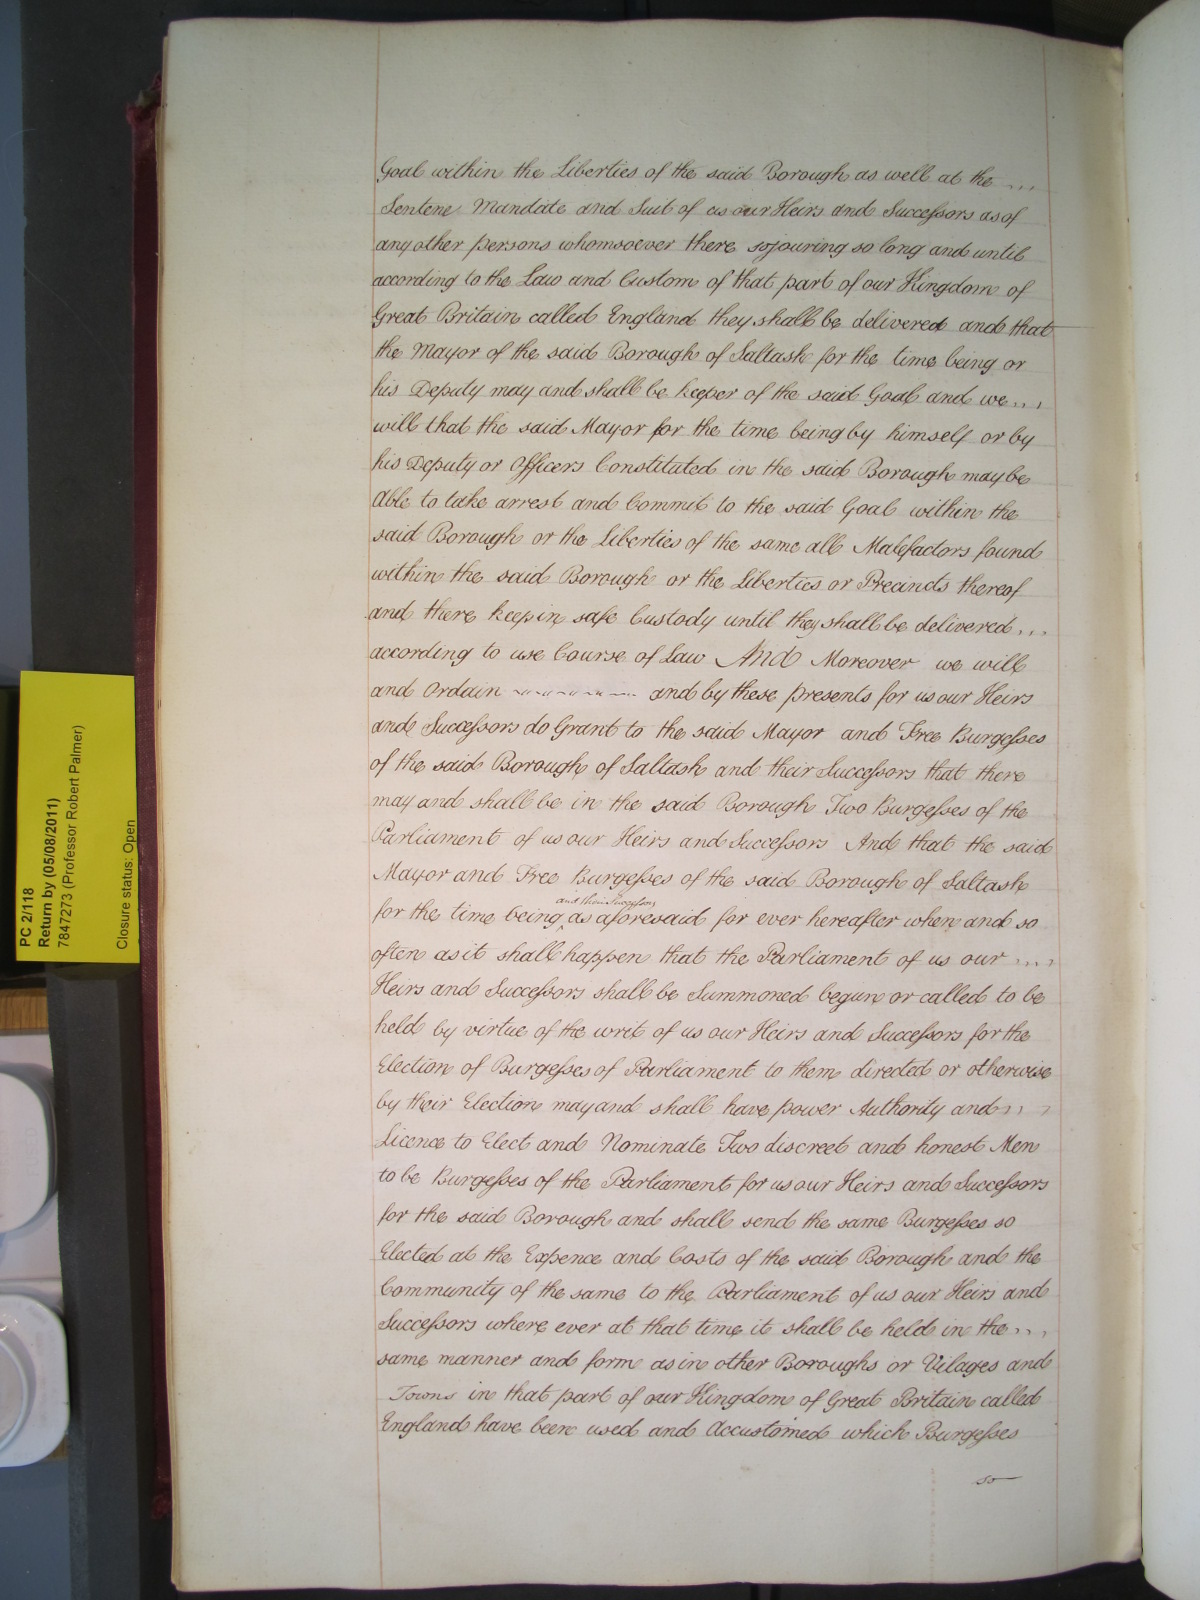 PC 2/118
Return by (05/08/2011)
7847273 (Professor Robert Palmer)
Closure status: Open
Goal within the Liberties of the said Borough as well at the ...
Sentene Mandate and Suit of us our Heirs and Successors as of
any other persons whomsoever there sojouring so long and until
according to the Law and Custom of that part of our Kingdom of
Great Britain called England they shall be delivered and that
the Mayor of the said Borough of Saltash for the time being or
his Deputy may and shall be keeper of the said Goal and we ...
will that the said Mayor for the time being by himself or by
his Deputy or Officers Constituted in the said Borough may be
Able to take arrest and Commit to the said Goal within the
said Borough or the Liberties of the same all Malefactors found
within the said Borough or the Liberties or Precincts thereof
and there keep in safe Custody until they shall be delivered ...
according to use Course of Law And Moreover we will
and Ordain ~~~~~~~ and by these presents for us our Heirs
and Successors do Grant to the said Mayor and Free Burgesses
of the said Borough of Saltash and their Successors that there
may and shall be in the said Borough Two Burgesses of the
Parliament of us our Heirs and Successors And that the said
Mayor and Free Burgesses of the said Borough of Saltash
and their Successors
for the time being ‸ as aforesaid for ever hereafter when and so
often as it shall happen that the Parliament of us our ...
Heirs and Successors shall be Summoned begun or called to be
held by virtue of the writ of us our Heirs and Successors for the
Election of Burgesses of Parliament to them directed or otherwise
by their Election may and shall have power Authority and
Licence to Elect and Nominate Two discreet and honest Men
to be Burgesses of the Parliament for us our Heirs and Successors
for the said Borough and shall send the same Burgesses so
Elected at the Expence and Costs of the said Borough and the
Community of the same to the Parliament of us our Heirs and
Successors where ever at that time it shall be held in the ...
same manner and form as in other Boroughs or Vilages and
Towns in that part of our Kingdom of Great Britain called
England have been used and Accustomed which Burgesses
so